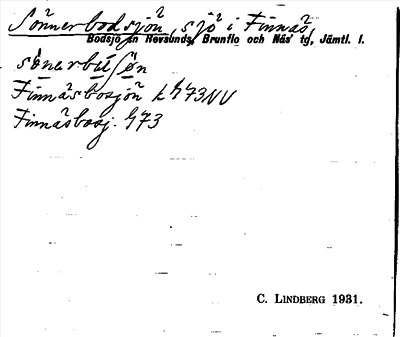 Sönnerbodsjön, sjö i Finnäs,
Bodsjö sn Revsunds, Brunflo och Näs' tg, Jämtl. l.
Finnäsbosjön L 473 NV
Finnäsbosj. 473
C. LINDBERG 1931.